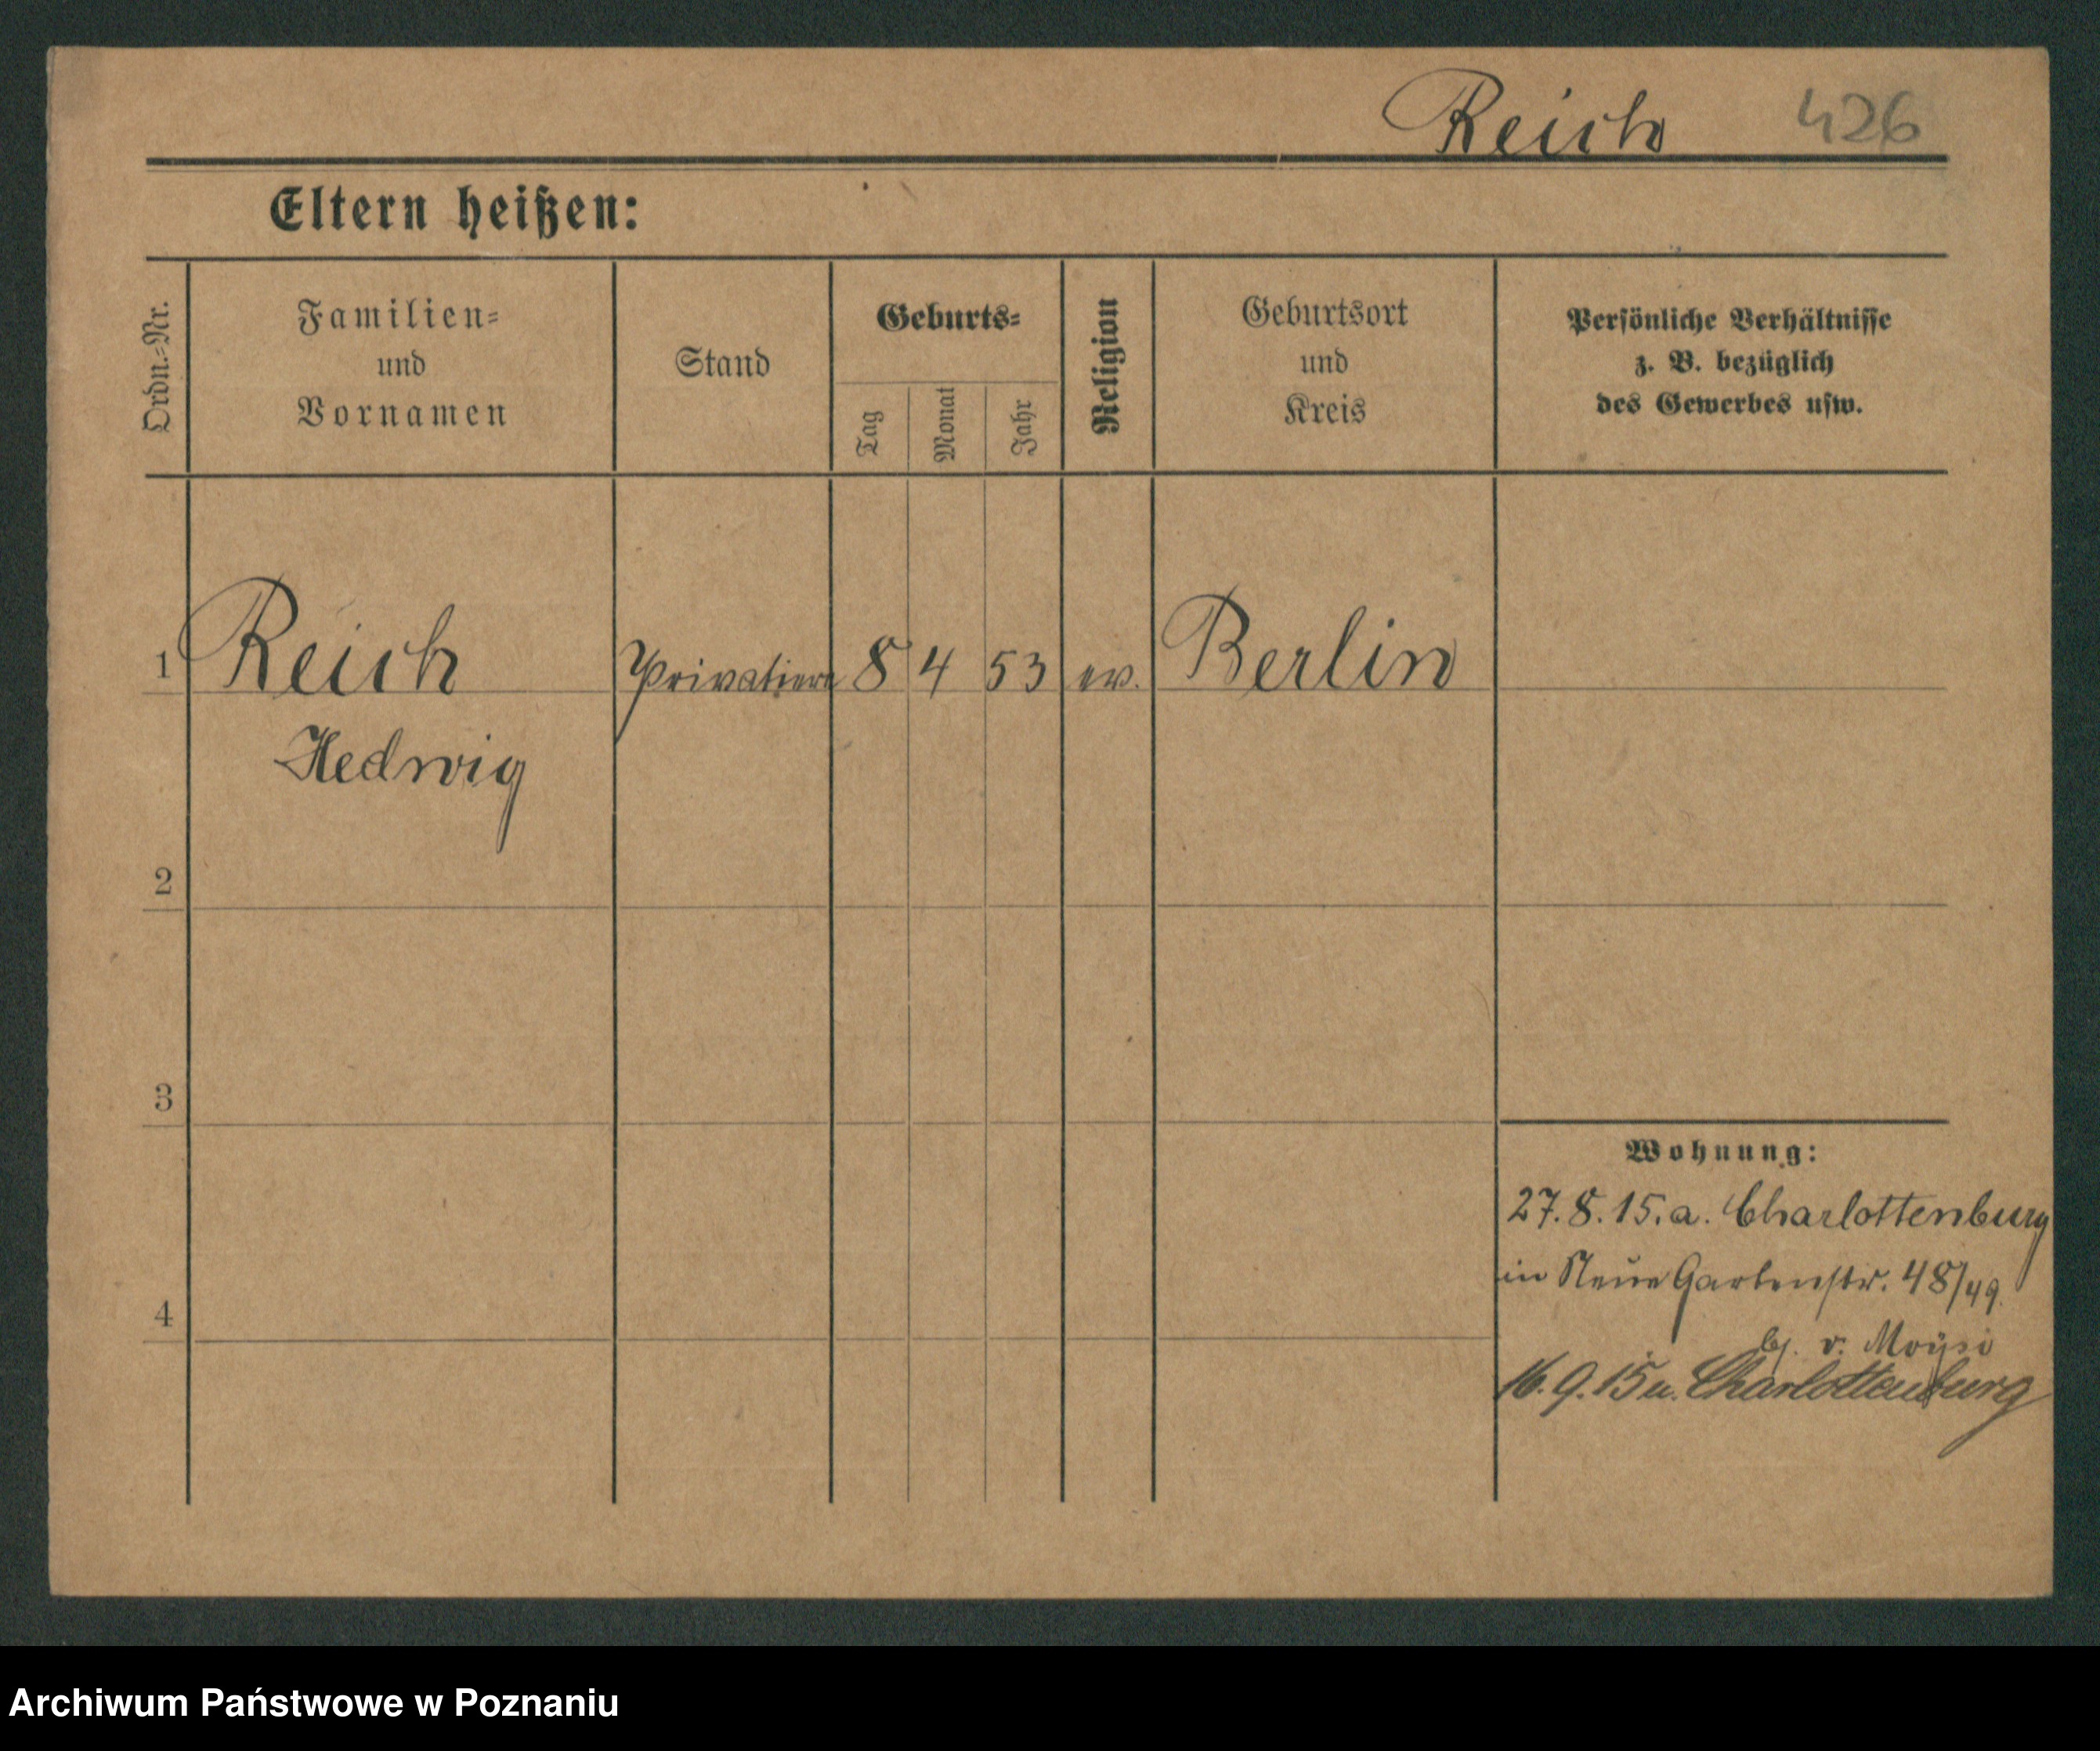 Reich 426
Eltern heißen:
Ordn.-Nr.
Familien-
und
Vornamen
Stand
Geburts-
Tag
Monat
Jahr
Religion
Geburtsort
und
Kreis
Persönliche Verhältnisse
z. B. bezüglich
des Gewerbes usw.
1 Reich Privatiere 8 4 53 ev. Berlin
Hedwig
2
3
Wohnung:
27.8.15. a. Charlottenburg
in Neue Gartenstr. 48/49.
4
b. v. Moÿsi
16.9.15 u. Charlottenburg
Archiwum Państwowe w Poznaniu